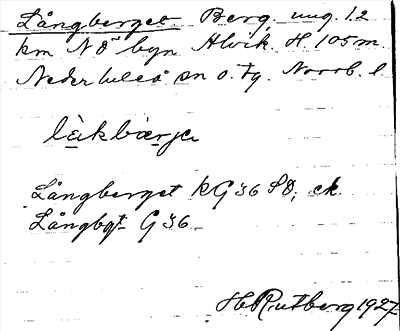 Långberget. Berg. ung. 1.2
km NÖ byn Alvik. H. 105 m.
Nederluleå sn o. tg. Norrb. l.
làkbærje
Långberget kG 36 SO, ek.
Långbgt G 36
HRutberg 1927.